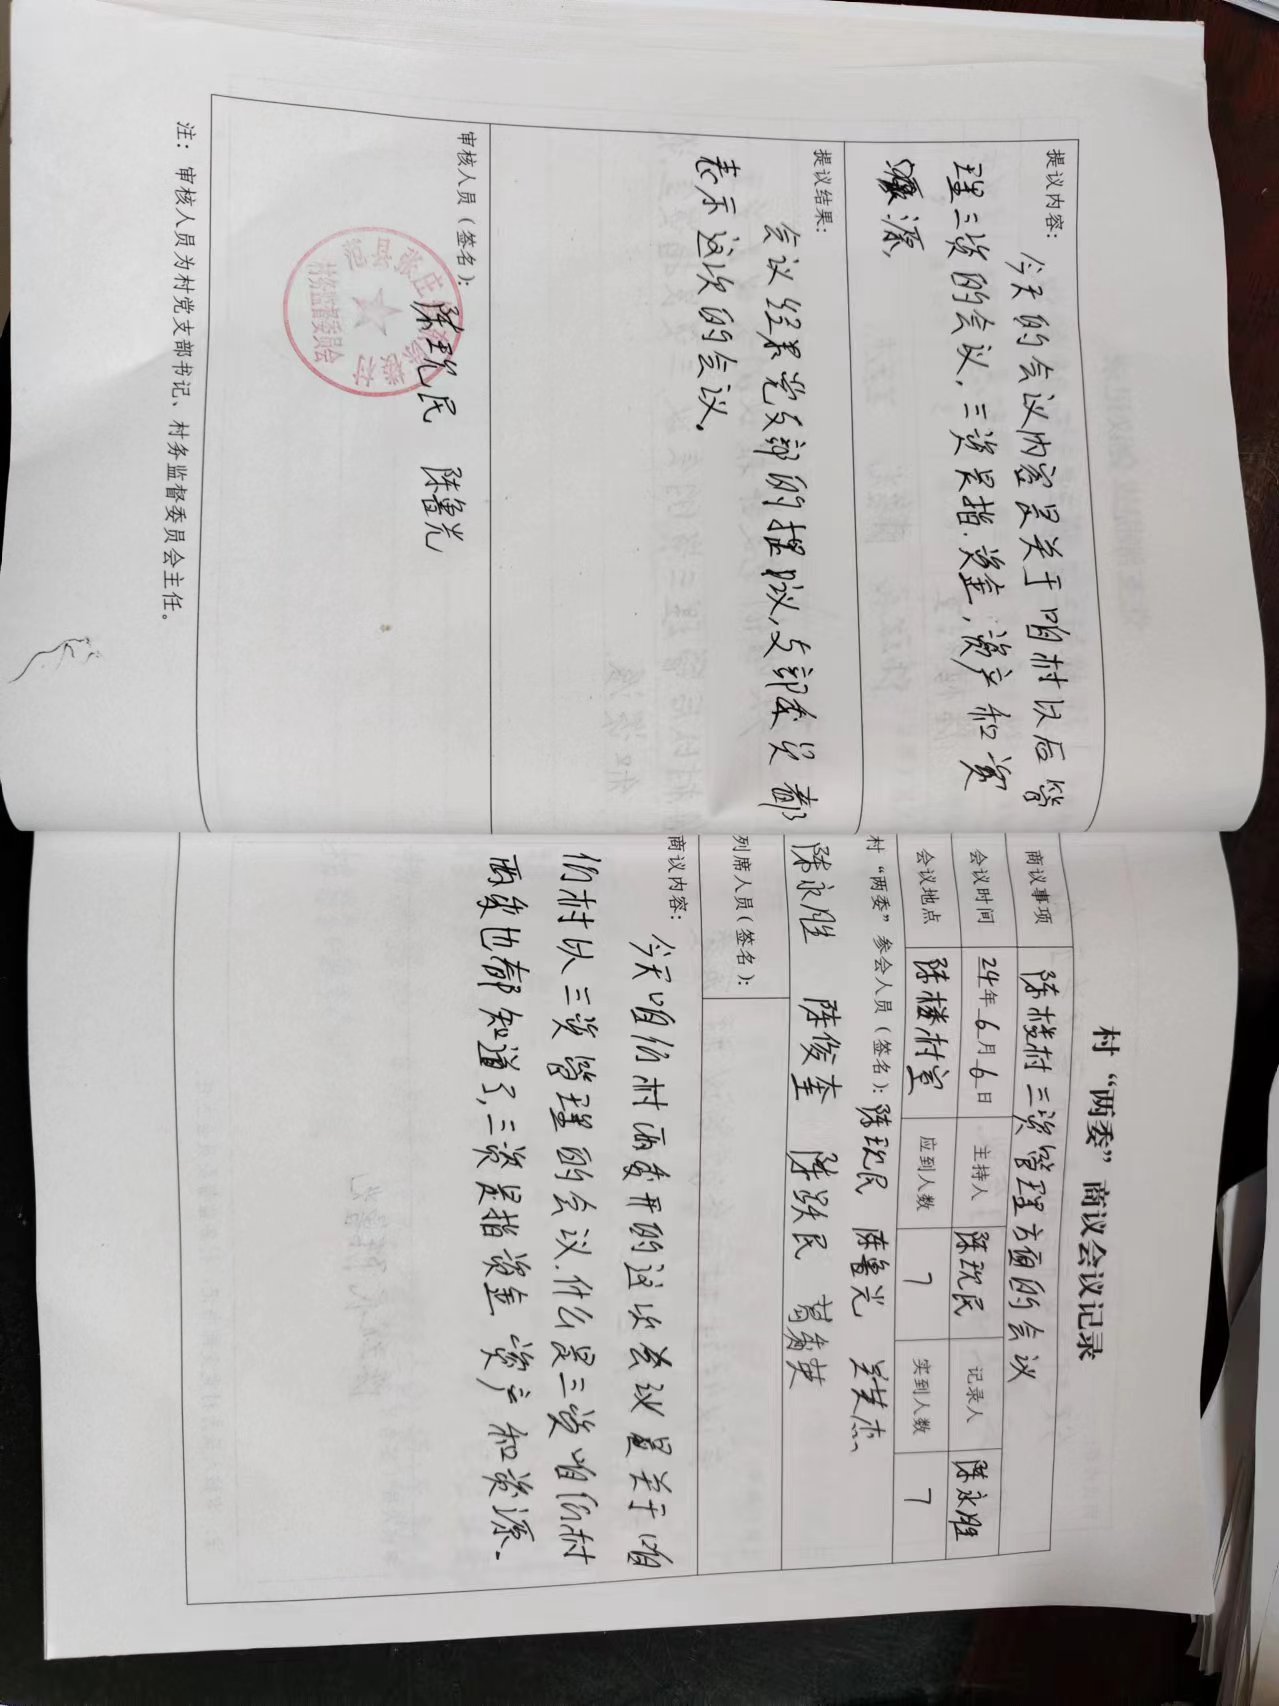 提议内容：
今天的会议内容是关于咱村以后管
理三资的会议，三资是指：资金，资产和资
源，
提议结果：
会议经果党支部的提议，支部委员都
表示这次的会议。
审核人员（签名）：陈现民 陈鲁光
范县张庄 陈楼村
村务监督委员会
注：审核人员为村党支部书记、村务监督委员会主任。
村“两委”商议会议记录
商议事项 陈楼村三资管理方面的会议
会议时间 24年6月6日 主持人 陈现民 记录人 陈永胜
会议地点 陈楼村室 应到人数 7 实到人数 7
村“两委”参会人员（签名）：陈现民 陈鲁光
陈永胜 陈俊奎 陈跃民 葛秀英
列席人员（签名）：
商议内容：
今天咱们村两委开的这次会议是关于咱
们村以三资管理的会议.什么是三资咱们村
两委也都知道了，三资是指资金 资产和资源.